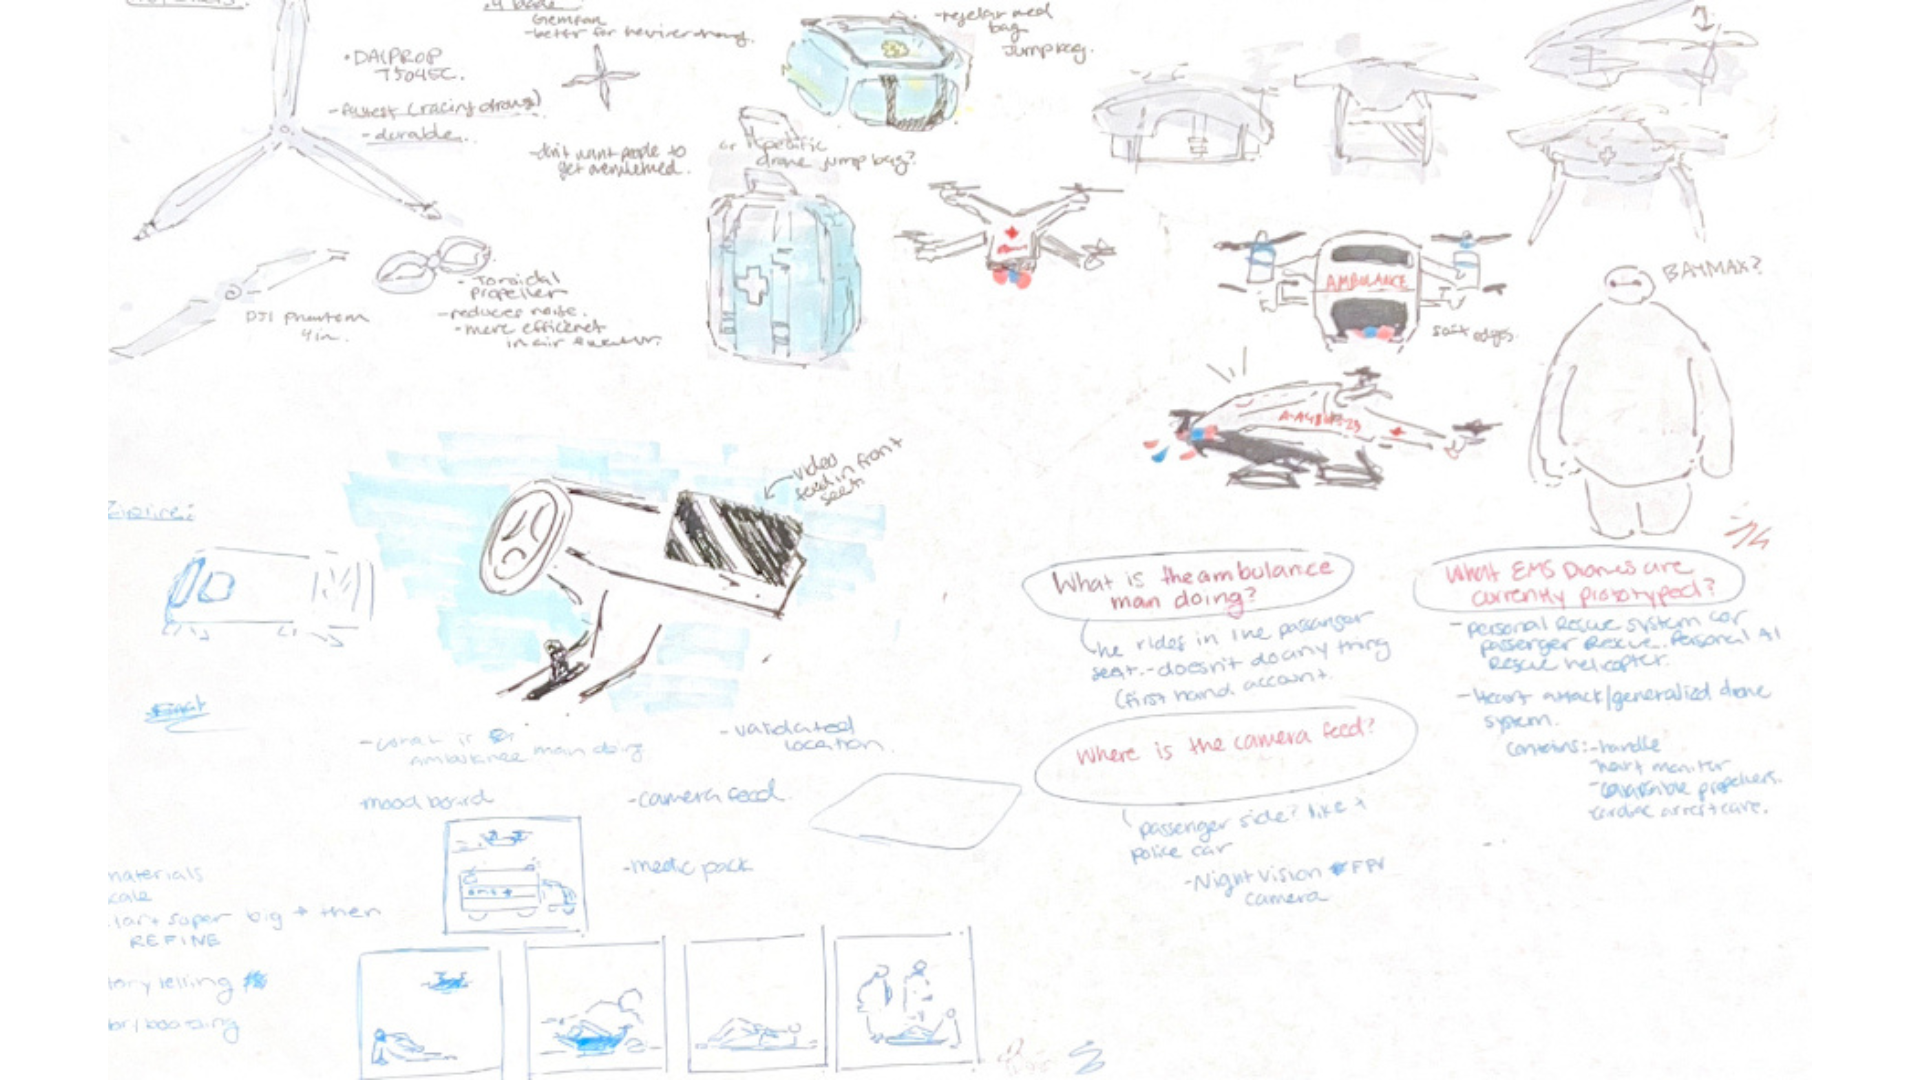 4 blade
Gemfan
- better for heavier drones.
• DALPROP
T5045C.
- fastest (racing drones)
- durable.
- don't want people to
get overwhelmed.
DJI Phantom
4in.
- Toroidal
propeller
- reduces noise.
- more efficient
in air
- regular med
bag
Jump bag.
or specific
drone jump bag?
AMBULANCE
soft edges.
BAYMAX?
video
feed in front
seat
Zipline:
- what is
ambulance man doing
- validated
location.
- mood board
- camera feed.
- medic pack
EMS +
REFINE
What is the ambulance
man doing?
he rides in the passenger
seat. - doesn't do anything
(first hand account.
Where is the camera feed?
passenger side? like a
police car
- Night vision FPV
camera
What EMS Drones are
currently prototyped?
- personal Rescue system for
passenger Rescue. Personal AI
Rescue helicopter.
- Heart attack/generalized drone
system.
Contains: - handle
heart monitor
- collapsible propellers.
cardiac arrest care.